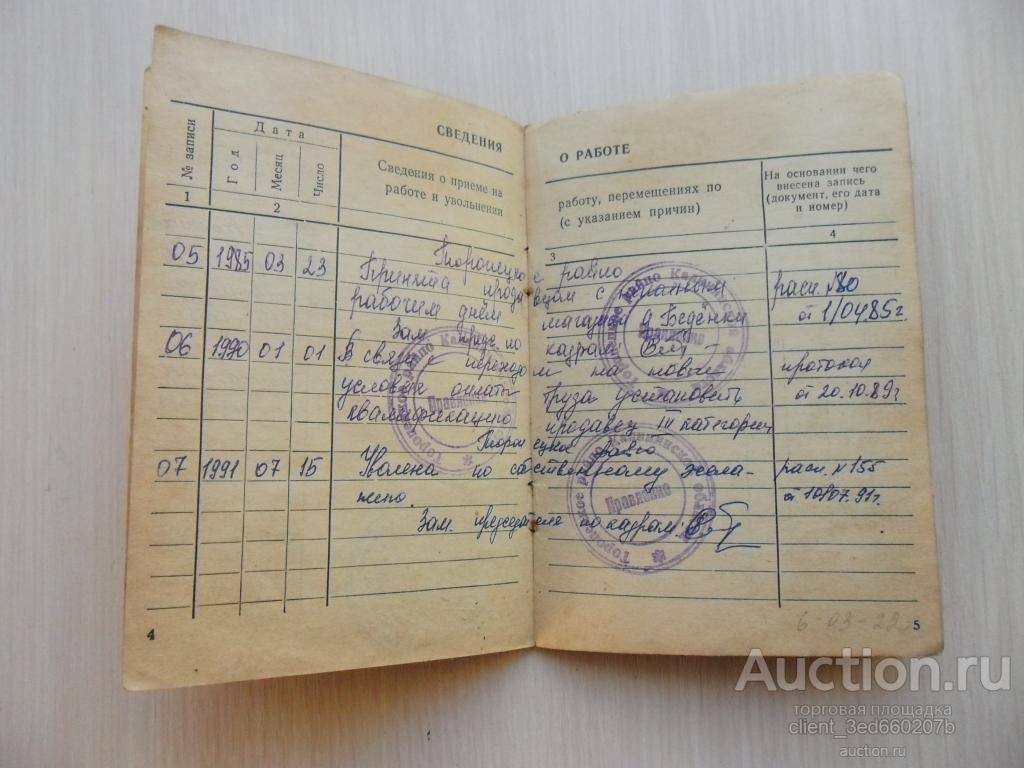 СВЕДЕНИЯ
О РАБОТЕ
№ записи
Дата
Год
Месяц
Число
Сведения о приеме на
работе и увольнении
работу, перемещениях по
(с указанием причин)
На основании чего
внесена запись
(документ, его дата
и номер)
1
2
3
4
Торопецкое райпо
05 1985 03 23 Принята продавцом с неполным расп. №80
рабочим днём магазин д Беденки от 1/04 85 г.
Зам. пред. по кадрам
06 1990 01 01 В связи переходом на новые протокол
условия оплаты труда установить от 20.10.89 г
квалификацию продавец III категории
Торопецкое райпо
07 1991 07 15 Уволена по собственному жела- расп. №155
нию. от 10.07.91 г.
Зам. председателя по кадрам:
Правление
Правление
Правление
4
5
6-03-22
Auction.ru
торговая площадка
client_3ed660207b
auction.ru